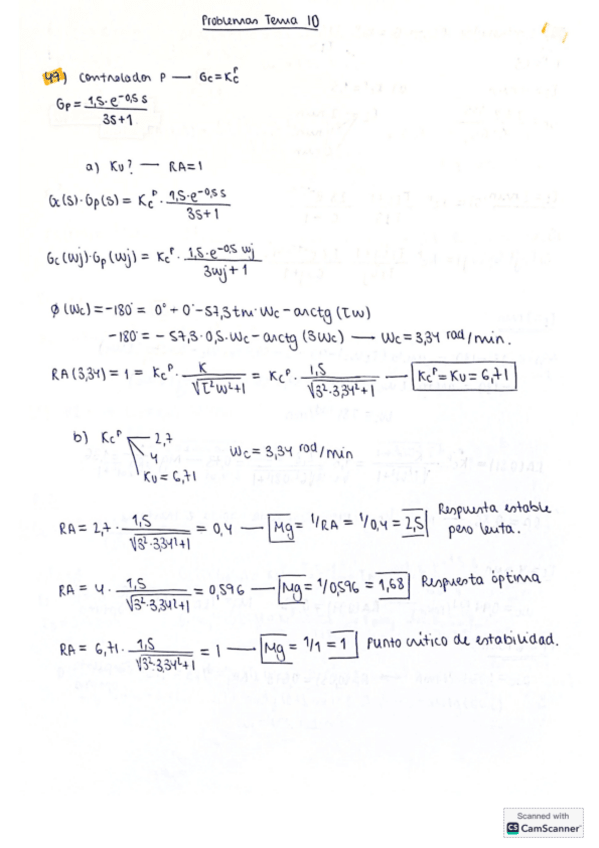 Problemas Tema 10
49) Controlador P — Gc = Kc^P
Gp = 1,5·e^-0,5 s / 3s+1
a) Ku? — RA = 1
Gc(s)·Gp(s) = Kc^P · 1,5·e^-0,5 s / 3s+1
Gc(wj)·Gp(wj) = Kc^P · 1,5·e^-0,5 wj / 3wj+1
Ø(wc) = -180° = 0° + 0° - 57,3 tm·wc - arctg(τw)
-180° = -57,3·0,5·wc - arctg(3wc) — wc = 3,34 rad/min.
RA(3,34) = 1 = Kc^P · K / √τ²w²+1 = Kc^P · 1,5 / √3²·3,34²+1 — Kc^P = Ku = 6,71
b) Kc^P 2,7
4 wc = 3,34 rad/min
Ku = 6,71
RA = 2,7 · 1,5 / √3²·3,34²+1 = 0,4 — Mg = 1/RA = 1/0,4 = 2,5 Respuesta estable
pero lenta.
RA = 4 · 1,5 / √3²·3,34²+1 = 0,596 — Mg = 1/0,596 = 1,68 Respuesta óptima
RA = 6,71 · 1,5 / √3²·3,34²+1 = 1 — Mg = 1/1 = 1 Punto crítico de estabilidad.
Scanned with
CS CamScanner